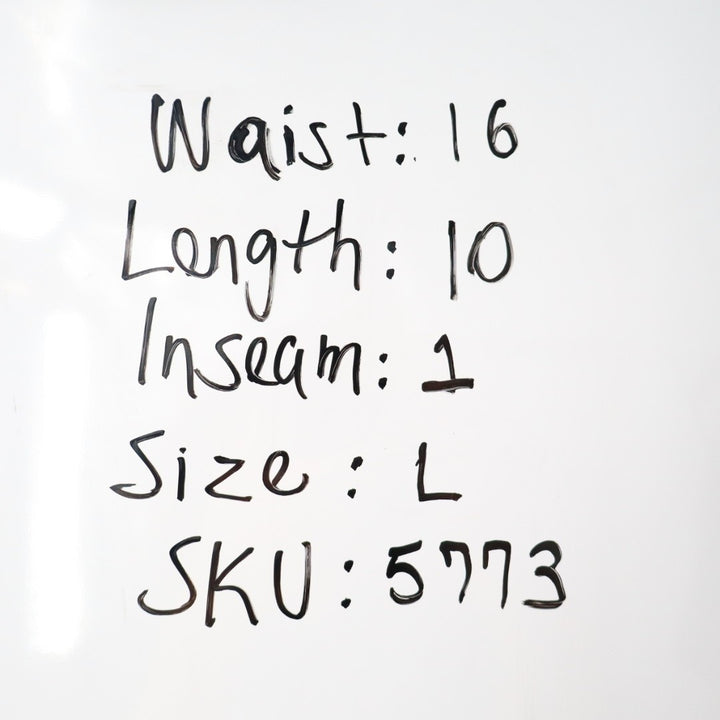 Waist: 16
Length: 10
Inseam: 1
Size: L
SKU: 5773